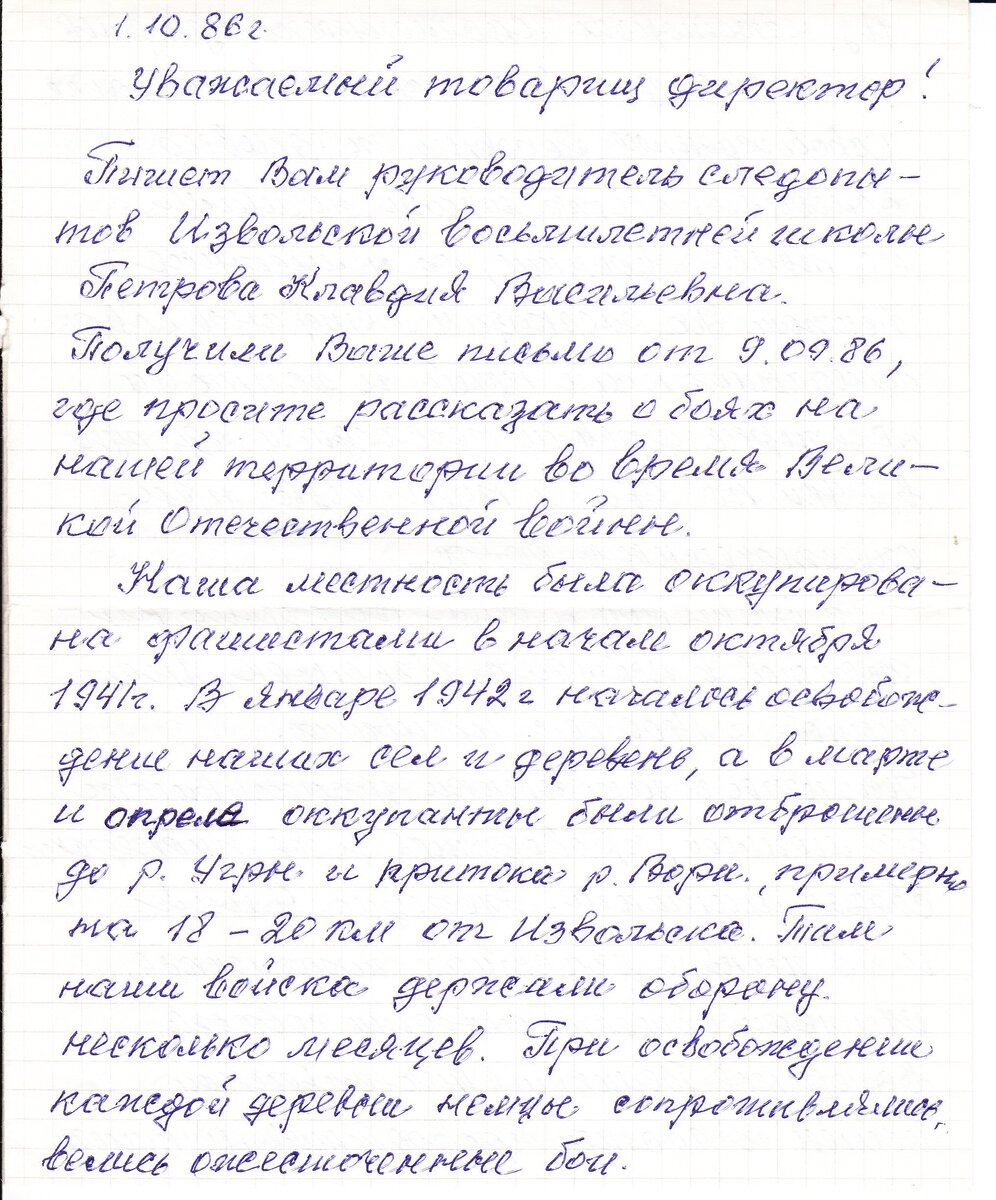 1.10.86г.
Уважаемый товарищ директор!
Пишет Вам руководитель следопы-
тов Извольской восьмилетней школы
Петрова Клавдия Васильевна.
Получили Ваше письмо от 9.09.86,
где просите рассказать о боях на
нашей территории во время Вели-
кой Отечественной войны.
Наша местность была оккупирова-
на фашистами в начале октября
1941г. В январе 1942г началось освобож-
дение наших сел и деревень, а в марте
и апреле оккупанты были отброшены
до р. Угры и притока р. Вори, примерно
на 18-20 км от Извольска. Там
наши войска держали оборону
несколько месяцев. При освобождении
каждой деревни немцы сопротивлялись,
велись ожесточенные бои.